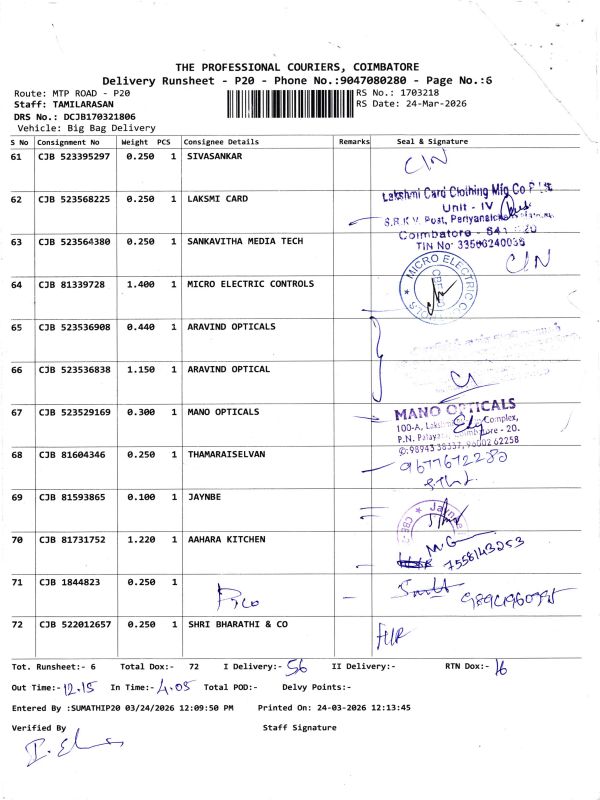 THE PROFESSIONAL COURIERS, COIMBATORE
Delivery Runsheet - P20 - Phone No.:9047080280 - Page No.:6
Route: MTP ROAD - P20
RS No.: 1703218
Staff: TAMILARASAN
RS Date: 24-Mar-2026
DRS No.: DCJB170321806
Vehicle: Big Bag Delivery
S No Consignment No Weight PCS Consignee Details Remarks Seal & Signature
61 CJB 523395297 0.250 1 SIVASANKAR C/N
62 CJB 523568225 0.250 1 LAKSMI CARD
Lakshmi Card Clothing Mfg Co P
Unit - IV
S.R.K.V. Post,
Coimbatore - 641 020
TIN No:
63 CJB 523564380 0.250 1 SANKAVITHA MEDIA TECH C/N
64 CJB 81339728 1.400 1 MICRO ELECTRIC CONTROLS
MICRO ELECTRIC
65 CJB 523536908 0.440 1 ARAVIND OPTICALS
66 CJB 523536838 1.150 1 ARAVIND OPTICAL
67 CJB 523529169 0.300 1 MANO OPTICALS
MANO OPTICALS
100-A, Complex,
P.N. - 20.
98943 38337, 96002 62258
68 CJB 81604346 0.250 1 THAMARAISELVAN
9677672282
69 CJB 81593865 0.100 1 JAYNBE
70 CJB 81731752 1.220 1 AAHARA KITCHEN
M.G
7558143253
71 CJB 1844823 0.250 1
72 CJB 522012657 0.250 1 SHRI BHARATHI & CO
Tot. Runsheet:- 6 Total Dox:- 72 I Delivery:- 56 II Delivery:- RTN Dox:- 16
Out Time:- 12.15 In Time:- 4.05 Total POD:- Delvy Points:-
Entered By :SUMATHIP20 03/24/2026 12:09:50 PM Printed On: 24-03-2026 12:13:45
Verified By Staff Signature